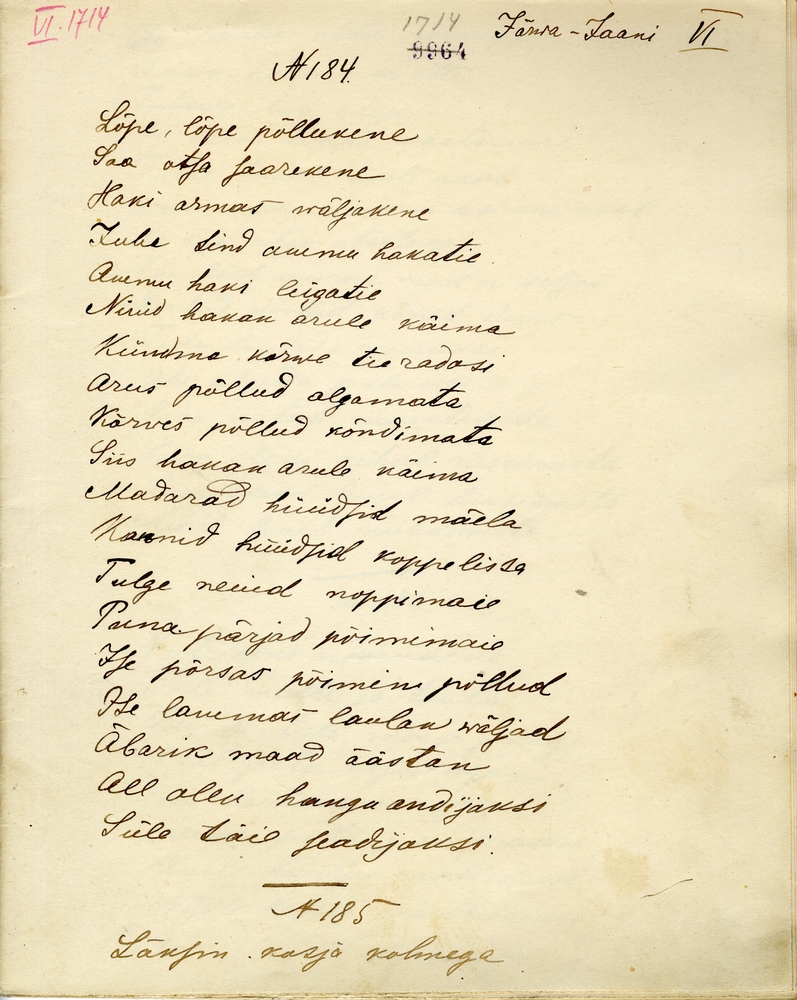 VI. 1714
1714
9964
Järwa-Jaani VI
№ 184.
Lõpe, lõpe põllukene
Saa otsa saarekene
Haki armas wäljakene
Juba sind auemu hakatie
Auemu haki leigatie
Nüüd hakan arule käima
Kündma kõrwe tee radasi
Arus põllud algamata
Kõrwes põllud kõndimata
Siis hakan arule käima
Madarad hüüdsid mäela
Kannid hüüdsid koppelissa
Tulge neiud noppimaie
Puna pärjad põimimaie
Ise põrsas põimin põllud
Ise lauemas laulan wäljad
Äbarik maad äästan
All ollu hangu andijaksi
Süle täie seadijaksi.
№ 185
Läksin kosja kolmega